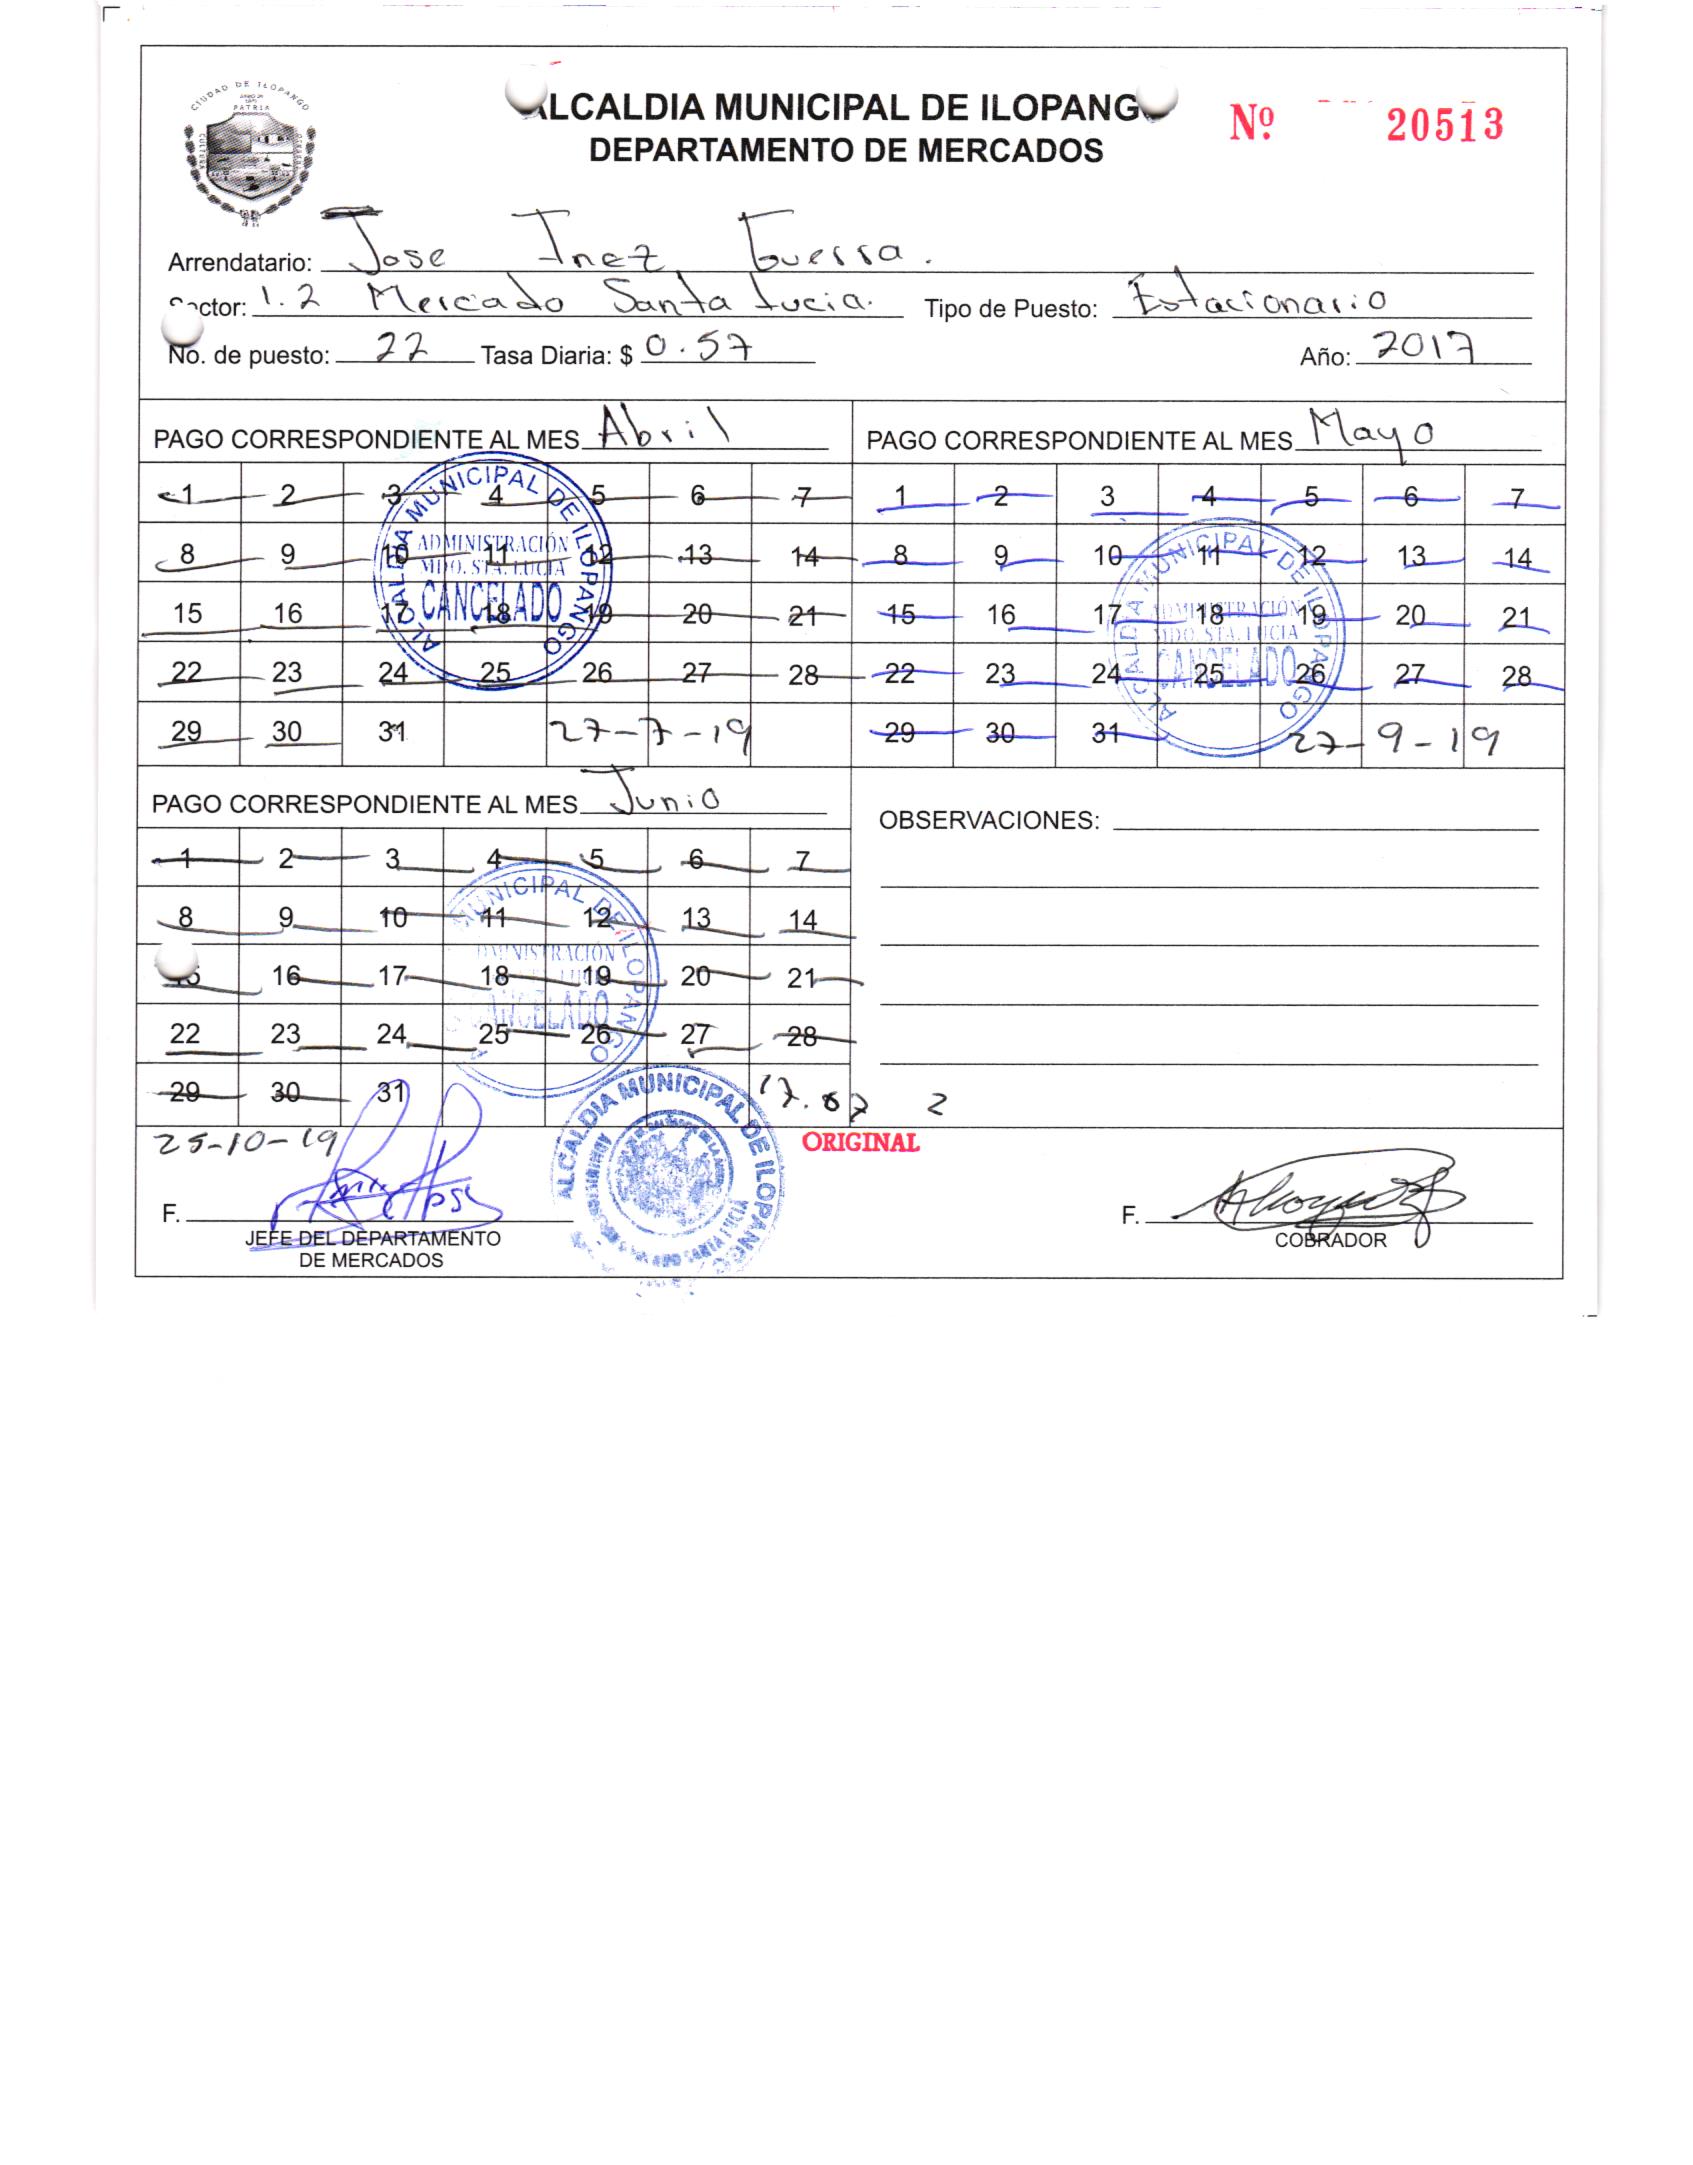 CIUDAD DE ILOPANGO
PATRIA
CULTURA
ALCALDIA MUNICIPAL DE ILOPANGO
DEPARTAMENTO DE MERCADOS
Nº 20513
Arrendatario: Jose Inez Guerra.
Sector: 1.2 Mercado Santa Lucia. Tipo de Puesto: Estacionario
No. de puesto: 22 Tasa Diaria: $ 0.57 Año: 2017
PAGO CORRESPONDIENTE AL MES Abril
1 2 3 4 5 6 7
8 9 10 11 12 13 14
15 16 17 18 19 20 21
22 23 24 25 26 27 28
29 30 31 27-7-19
ALCALDIA MUNICIPAL DE ILOPANGO
ADMINISTRACIÓN
MDO. STA. LUCIA
CANCELADO
PAGO CORRESPONDIENTE AL MES Mayo
1 2 3 4 5 6 7
8 9 10 11 12 13 14
15 16 17 18 19 20 21
22 23 24 25 26 27 28
29 30 31 27-9-19
ALCALDIA MUNICIPAL DE ILOPANGO
ADMINISTRACIÓN
MDO. STA. LUCIA
CANCELADO
PAGO CORRESPONDIENTE AL MES Junio
1 2 3 4 5 6 7
8 9 10 11 12 13 14
15 16 17 18 19 20 21
22 23 24 25 26 27 28
29 30 31
MUNICIPAL DE ILOPANGO
ADMINISTRACIÓN
CANCELADO
OBSERVACIONES:
17.67 2
25-10-19
ORIGINAL
ALCALDIA MUNICIPAL DE ILOPANGO
F.
JEFE DEL DEPARTAMENTO
DE MERCADOS
F.
COBRADOR